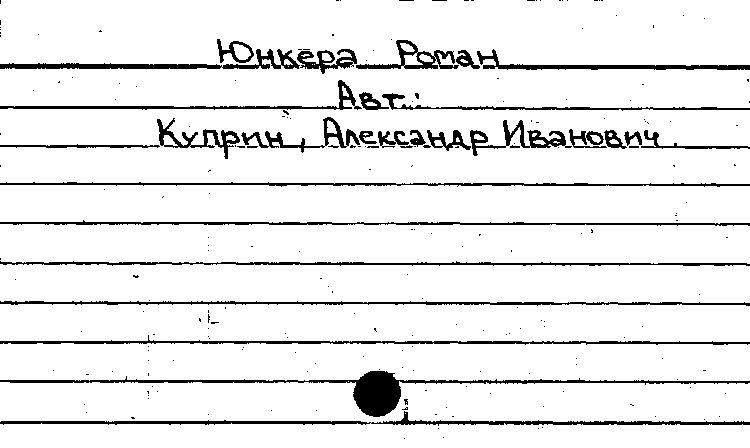 Юнкера Роман
Авт.:
Куприн, Александр Иванович.